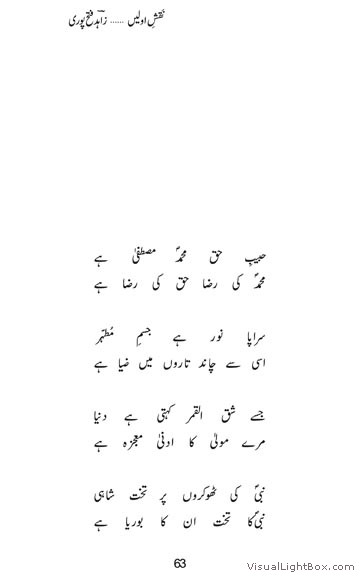 نقشِ اولیں ...... زاہدؔ فتح پوری
حبیبِ حق محمدؐ مصطفیٰ ہے
محمدؐ کی رضا حق کی رضا ہے
سراپا نور ہے جسمِ مُطہّر
اسی سے چاند تاروں میں ضیا ہے
جسے شق القمر کہتی ہے دنیا
مرے مولیٰ کا ادنیٰ معجزہ ہے
نبیؐ کی ٹھوکروں پر تخت شاہی
نبیؐ کا تخت ان کا بوریا ہے
63
VisualLightBox.com